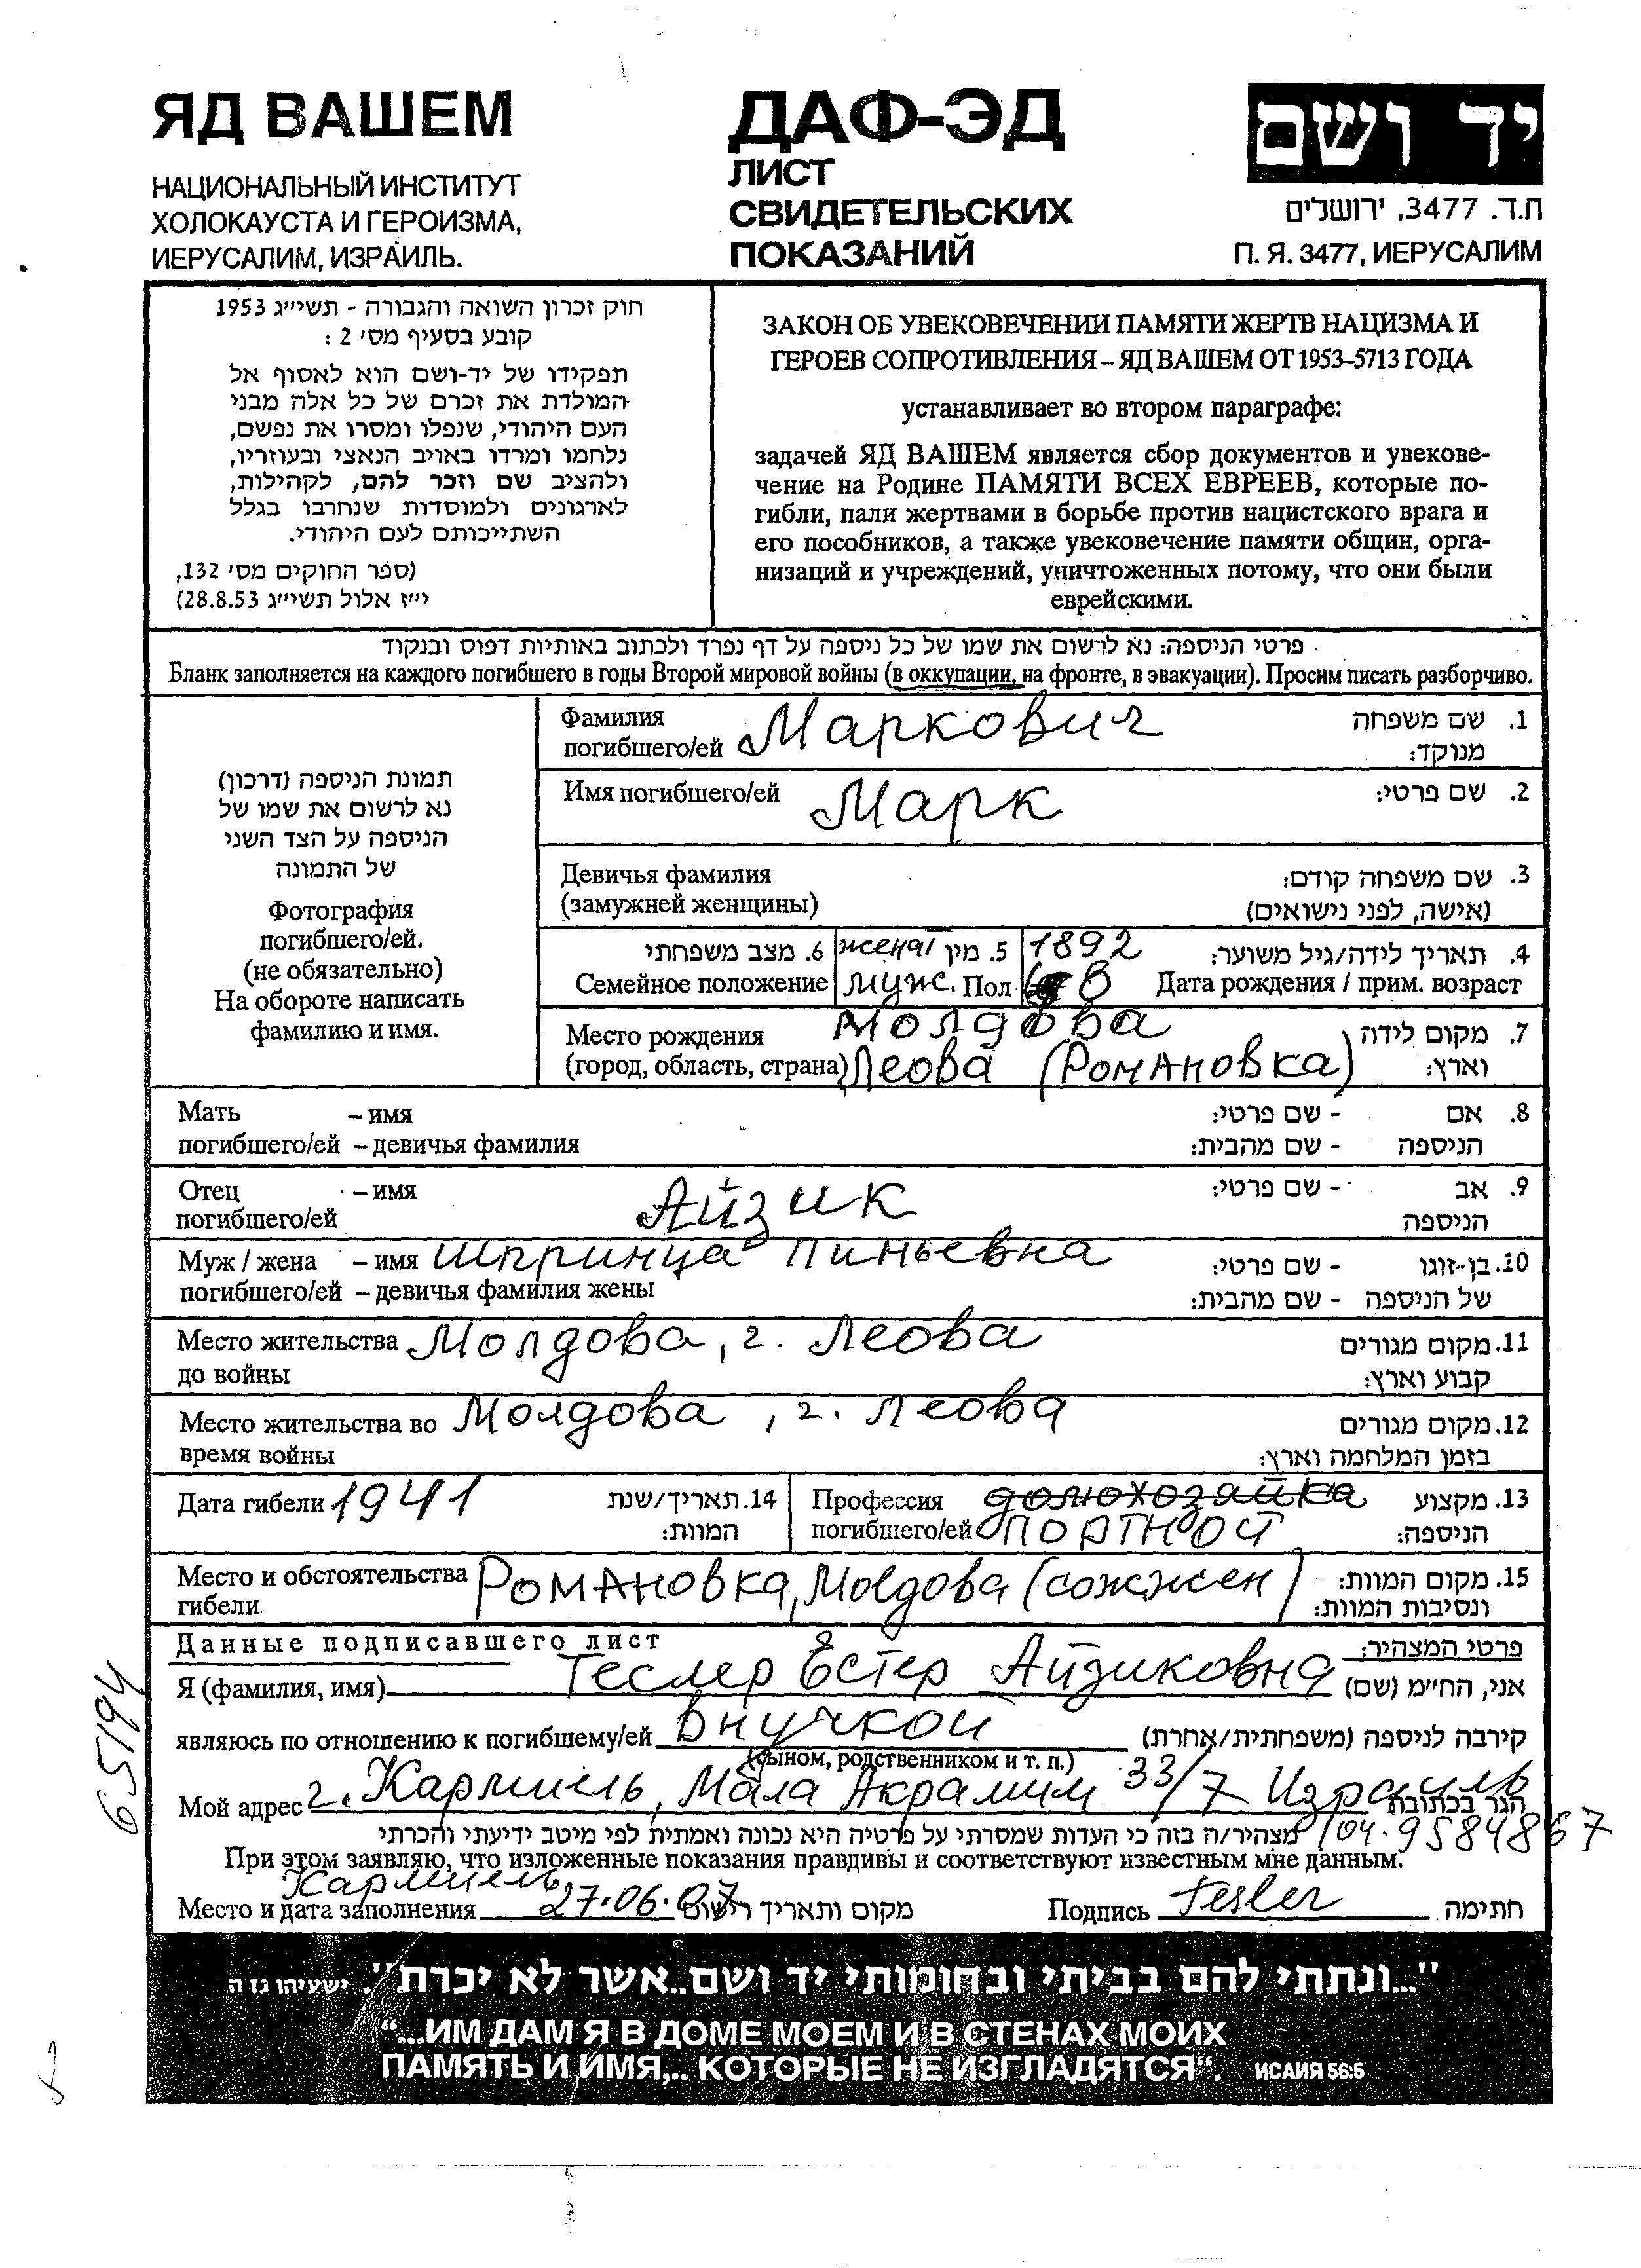 ЯД ВАШЕМ
НАЦИОНАЛЬНЫЙ ИНСТИТУТ
ХОЛОКАУСТА И ГЕРОИЗМА,
ИЕРУСАЛИМ, ИЗРАИЛЬ.
ДАФ-ЭД
ЛИСТ
СВИДЕТЕЛЬСКИХ
ПОКАЗАНИЙ
יד ושם
ת.ד. 3477, ירושלים
П. Я. 3477, ИЕРУСАЛИМ
חוק זכרון השואה והגבורה - תשי״ג 1953
קובע בסעיף מס׳ 2 :
תפקידו של יד-ושם הוא לאסוף אל
המולדת את זכרם של כל אלה מבני
העם היהודי, שנפלו ומסרו את נפשם,
נלחמו ומרדו באויב הנאצי ובעוזריו,
ולהציב שם וזכר להם, לקהילות,
לארגונים ולמוסדות שנחרבו בגלל
השתייכותם לעם היהודי.
(ספר החוקים מס׳ 132,
י״ז אלול תשי״ג 28.8.53)
ЗАКОН ОБ УВЕКОВЕЧЕНИИ ПАМЯТИ ЖЕРТВ НАЦИЗМА И
ГЕРОЕВ СОПРОТИВЛЕНИЯ – ЯД ВАШЕМ ОТ 1953–5713 ГОДА
устанавливает во втором параграфе:
задачей ЯД ВАШЕМ является сбор документов и увекове-
чение на Родине ПАМЯТИ ВСЕХ ЕВРЕЕВ, которые по-
гибли, пали жертвами в борьбе против нацистского врага и
его пособников, а также увековечение памяти общин, орга-
низаций и учреждений, уничтоженных потому, что они были
еврейскими.
פרטי הניספה: נא לרשום את שמו של כל ניספה על דף נפרד ולכתוב באותיות דפוס ובנקוד
Бланк заполняется на каждого погибшего в годы Второй мировой войны (в оккупации, на фронте, в эвакуации). Просим писать разборчиво.
תמונת הניספה (דרכון)
נא לרשום את שמו של
הניספה על הצד השני
של התמונה
Фотография
погибшего/ей.
(не обязательно)
На обороте написать
фамилию и имя.
Фамилия Маркович 1. שם משפחה
погибшего/ей מנוקד:
Имя погибшего/ей Марк 2. שם פרטי:
Девичья фамилия 3. שם משפחה קודם:
(замужней женщины) (אישה, לפני נישואים)
6. מצב משפחתי женат 5. מין 1892 4. תאריך לידה/גיל משוער:
Семейное положение муж. Пол Дата рождения / прим. возраст
Место рождения Молдова 7. מקום לידה
(город, область, страна) Леова (Романовка) וארץ:
Мать – имя 8. אם - שם פרטי:
погибшего/ей – девичья фамилия הניספה - שם מהבית:
Отец – имя Айзик 9. אב - שם פרטי:
погибшего/ей הניספה
Муж / жена – имя Шпринца Пиньевна 10. בן-זוגו - שם פרטי:
погибшего/ей – девичья фамилия жены של הניספה - שם מהבית:
Место жительства Молдова, г. Леова 11. מקום מגורים
до войны קבוע וארץ:
Место жительства во Молдова, г. Леова 12. מקום מגורים
время войны בזמן המלחמה וארץ:
Дата гибели 1941 14. תאריך/שנת
המוות:
Профессия домохозяйка 13. מקצוע
погибшего/ей ПОРТНОЙ הניספה:
Место и обстоятельства Романовка, Молдова (сожжен) 15. מקום המוות:
гибели ונסיבות המוות:
Данные подписавшего лист פרטי המצהיר:
Я (фамилия, имя) Теслер Естер Айзиковна אני, הח״מ (שם)
являюсь по отношению к погибшему/ей внучкой קירבה לניספה (משפחתית/אחרת)
(сыном, родственником и т. п.)
Мой адрес г. Кармиель, Мала Акрамим 33/7 Израиль הגר בכתובת
מצהיר/ה בזה כי העדות שמסרתי על פרטיה היא נכונה ואמתית לפי מיטב ידיעתי והכרתי 04.9584867
При этом заявляю, что изложенные показания правдивы и соответствуют известным мне данным.
Кармиель
Место и дата заполнения 27.06.07 מקום ותאריך רישום Подпись Tesler חתימה
65194
"...ונתתי להם בביתי ובחומותי יד ושם..אשר לא יכרת". ישעיהו נו ה
“...ИМ ДАМ Я В ДОМЕ МОЕМ И В СТЕНАХ МОИХ
ПАМЯТЬ И ИМЯ,.. КОТОРЫЕ НЕ ИЗГЛАДЯТСЯ“. ИСАИЯ 56:5